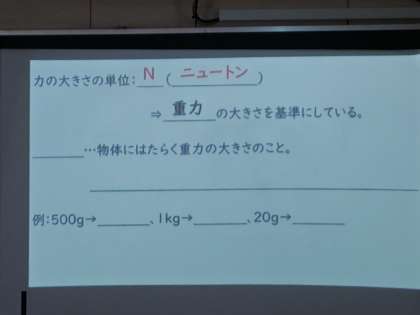 力の大きさの単位：N（ニュートン）
⇒重力の大きさを基準にしている。
…物体にはたらく重力の大きさのこと。
例：500g→、1kg→、20g→